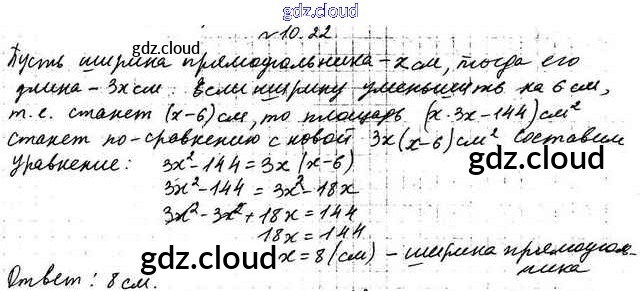 gdz.cloud
№10.22
gdz.cloud gdz.cloud
Пусть ширина прямоугольника - x см, тогда его
длина - 3x см. Если ширину уменьшить на 6 см,
т.е. станет (x-6) см, то площадь (x·3x-144) см²
станет по-сравнению с новой 3x(x-6) см² Составим
уравнение: 3x²-144=3x(x-6)
3x²-144=3x²-18x
gdz.cloud gdz.cloud
3x²-3x²+18x=144
18x=144
gdz.cloud
x=8 (см) - ширина прямоуголь-
ника
Ответ: 8 см.
gdz.cloud gdz.cloud